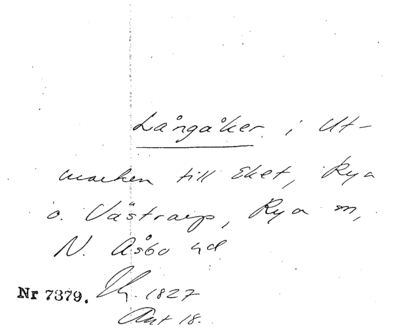 Långåker i Ut-
marken till Eket, Rya
o. Västraby, Rya sn,
N. Åsbo hd
Nr 7379. 1827
Akt 18.